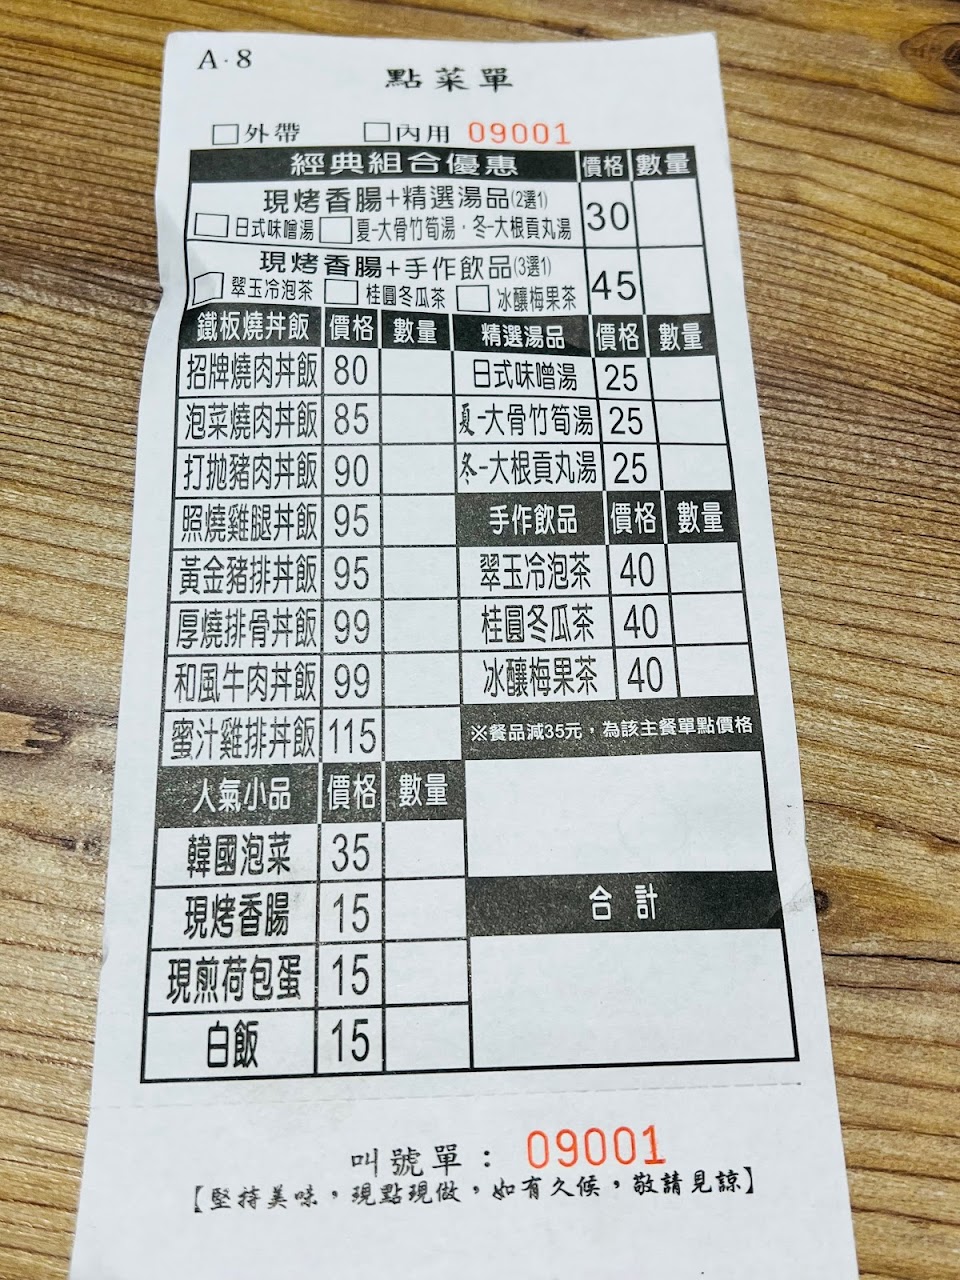 A·8
點菜單
□外帶 □內用 09001
經典組合優惠 價格 數量
現烤香腸+精選湯品(2選1) 30
□日式味噌湯 □夏-大骨竹筍湯·冬-大根貢丸湯
現烤香腸+手作飲品(3選1) 45
□翠玉冷泡茶 □桂圓冬瓜茶 □冰釀梅果茶
鐵板燒丼飯 價格 數量
招牌燒肉丼飯 80
泡菜燒肉丼飯 85
打拋豬肉丼飯 90
照燒雞腿丼飯 95
黃金豬排丼飯 95
厚燒排骨丼飯 99
和風牛肉丼飯 99
蜜汁雞排丼飯 115
人氣小品 價格 數量
韓國泡菜 35
現烤香腸 15
現煎荷包蛋 15
白飯 15
精選湯品 價格 數量
日式味噌湯 25
夏-大骨竹筍湯 25
冬-大根貢丸湯 25
手作飲品 價格 數量
翠玉冷泡茶 40
桂圓冬瓜茶 40
冰釀梅果茶 40
※餐品減35元，為該主餐單點價格
合計
叫號單：09001
【堅持美味，現點現做，如有久候，敬請見諒】